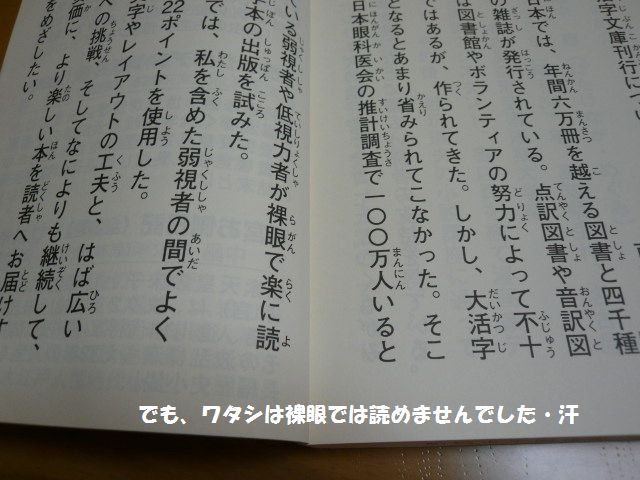 字文庫刊行につい
日本では、年間六万冊を越える図書と四千種
の雑誌が発行されている。点訳図書や音訳図
は図書館やボランティアの努力によって不十
ではあるが、作られてきた。しかし、大活字
となるとあまり省みられてこなかった。そこ
日本眼科医会の推計調査で一〇〇万人いると
ている弱視者や低視力者が裸眼で楽に読
字本の出版を試みた。
では、私を含めた弱視者の間でよく
22ポイントを使用した。
字やレイアウトの工夫と、はば広い
への挑戦、そしてなによりも継続して、
価に、より楽しい本を読者へお届けす
をめざしたい。
でも、ワタシは裸眼では読めませんでした・汗